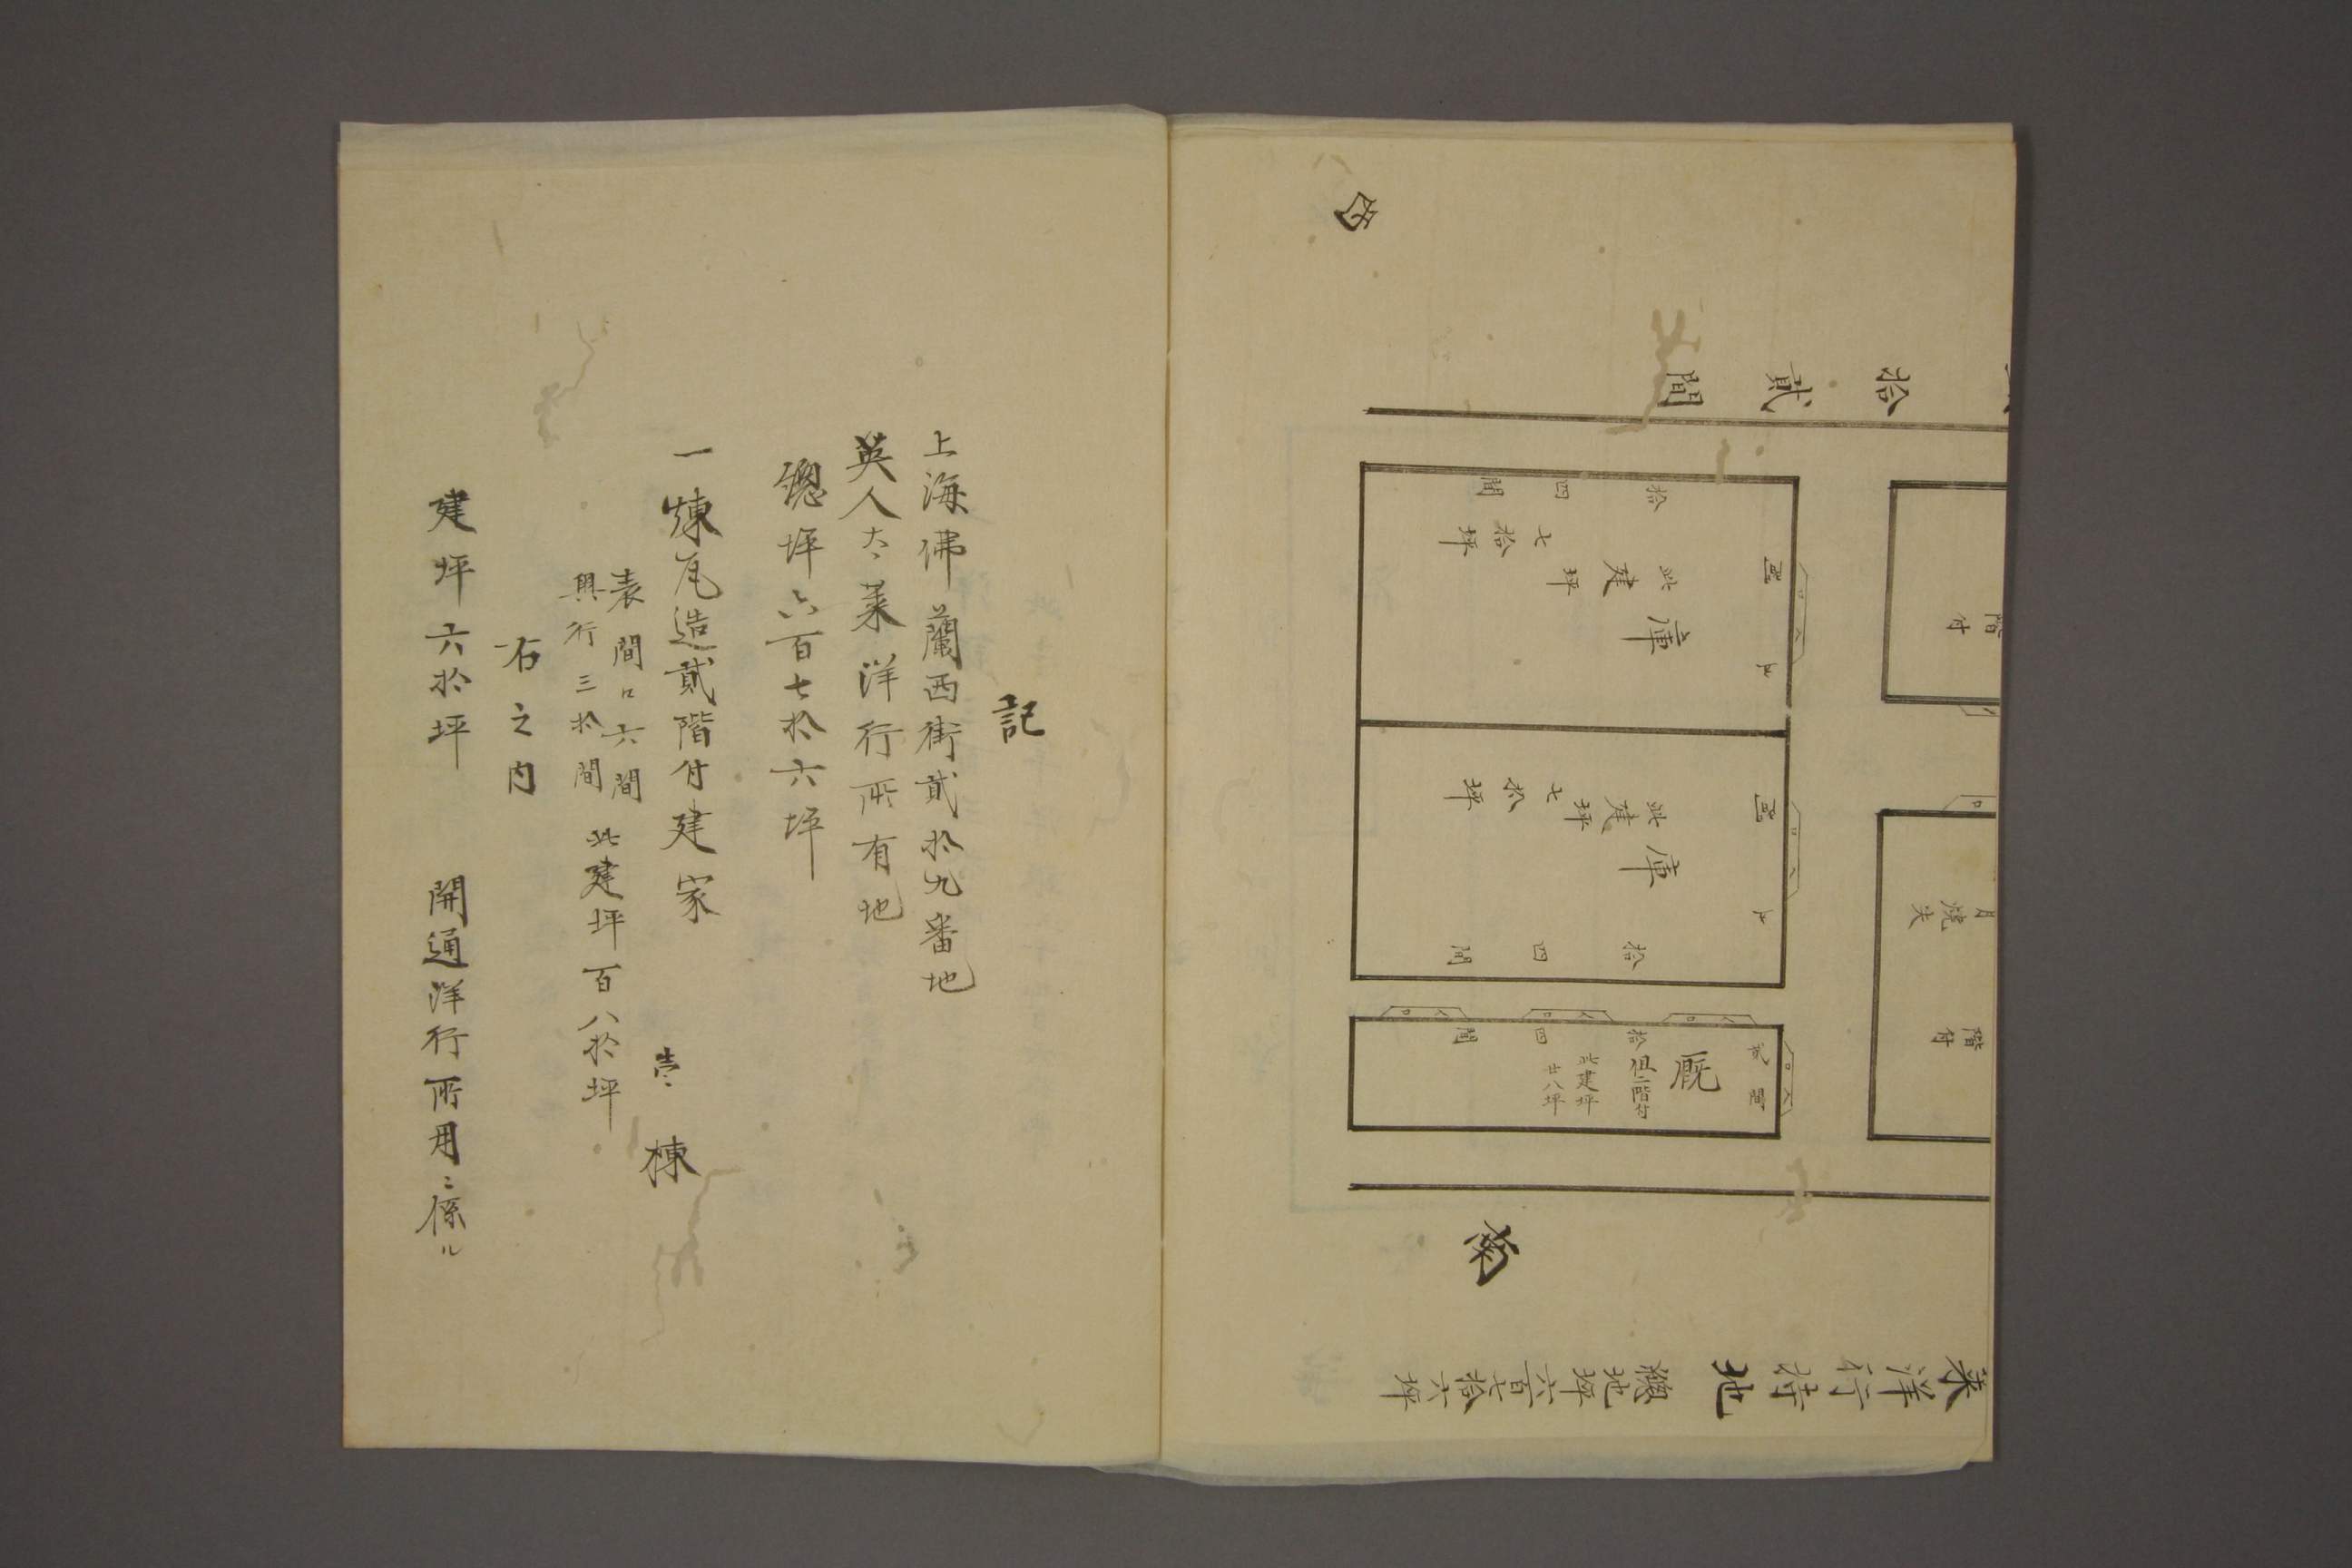 西
拾貳間
拾四間
此建坪
七拾坪
庫
五
入口
階付
此建坪
七拾坪
庫
五
入口
拾四間
月焼失
階付
入口
入口
入口
入口
拾四間
貳間
厩
但二階付
此建坪
廿八坪
南
莱洋行持地
總地坪六百七拾六坪
記
上海佛蘭西街貳拾九番地
英人
莱洋行所有地
總坪六百七拾六坪
一煉瓦造貳階付建家
壱棟
表間口六間
奥行三拾間
此建坪百八拾坪
右之内
建坪六拾坪
開通洋行所用ニ係ル